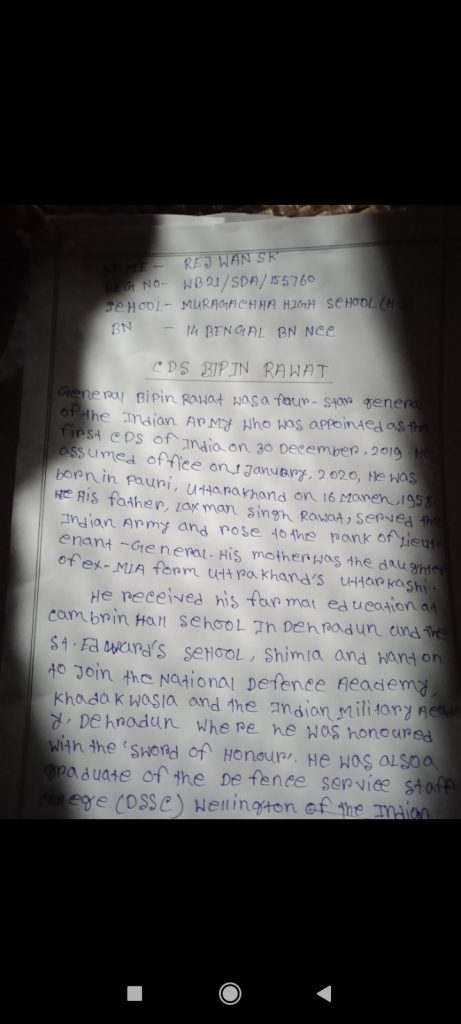 NAME - REJWAN SK
REG NO- WB21/SDA/155760
SCHOOL- MURAGACHHA HIGH SCHOOL (H.S)
BN - 14 BENGAL BN NCC
CDS BIPIN RAWAT
General Bipin Rawat was a four-star general
of the Indian Army who was appointed as the
first CDS of India on 30 December, 2019. He
assumed office on 1 January, 2020, He was
born in Pauri, Uttarakhand on 16 March, 1958
His father, Laxman Singh Rawat, served the
Indian Army and rose to the rank of Lieut-
enant-General. His mother was the daughter
of ex-MLA form Uttrakhand's Uttarkashi.
He received his farmal education at
cambrin Hall school In Dehradun and the
St. Edward's SCHOOL, Shimla and want on
to Join the National Defence Academy,
Khadakwasla and the Indian Military Acade
y, Dehradun where he was honoured
with the 'Sword of Honour'. He was also a
graduate of the Defence Service Staff
College (DSSC) Wellington of the Indian